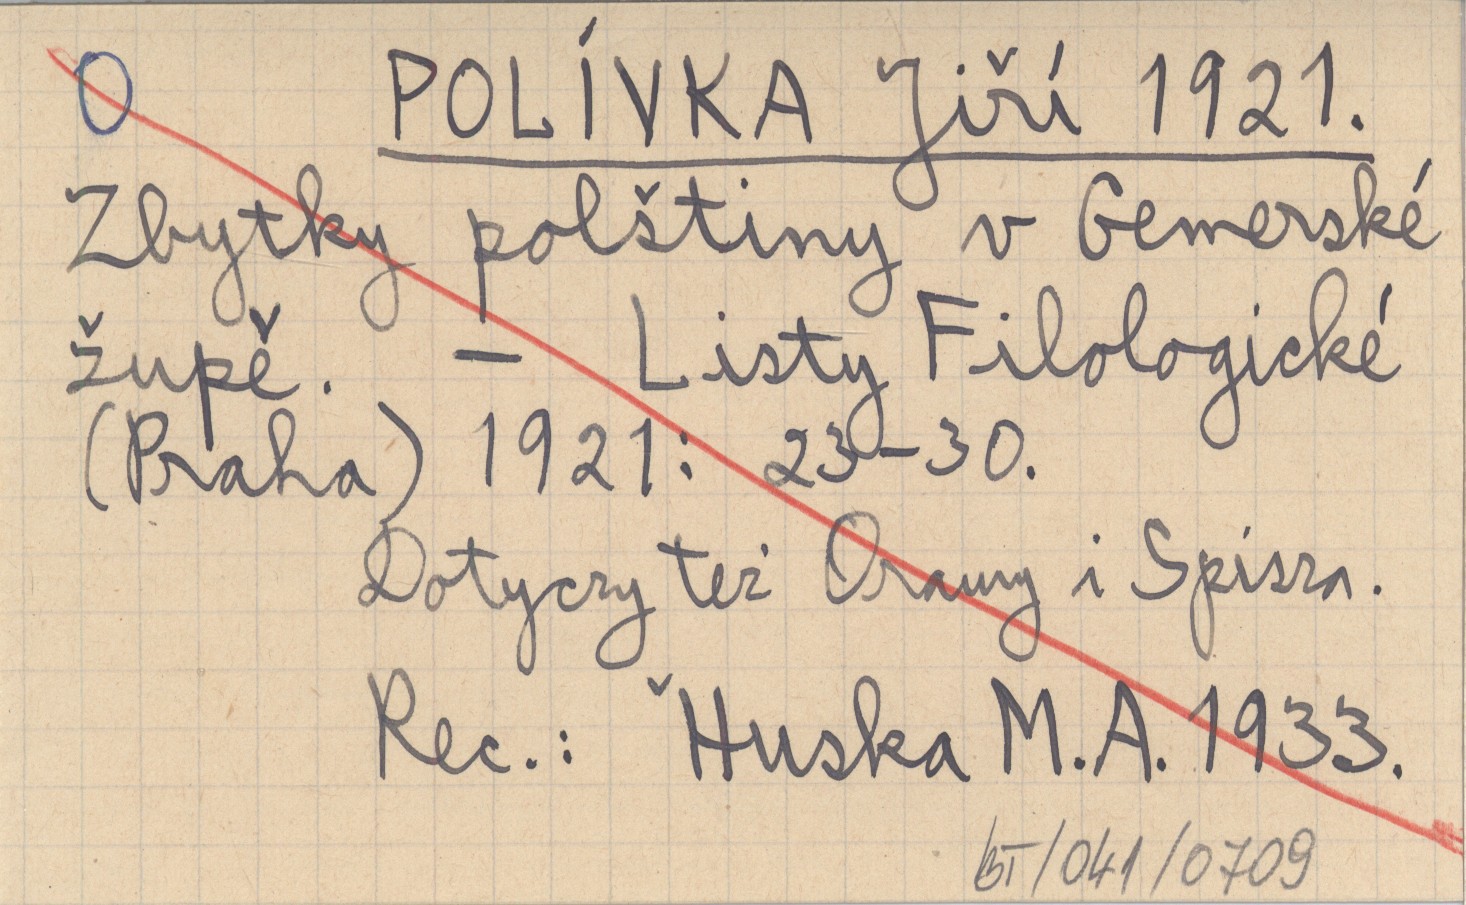 O POLÍVKA Jiří 1921.
Zbytky polštiny v Gemerské
župě. – Listy Filologické
(Praha) 1921: 23-30.
Dotyczy też Orawy i Spisza.
Rec.: ˇHuska M.A. 1933.
BT/041/0709